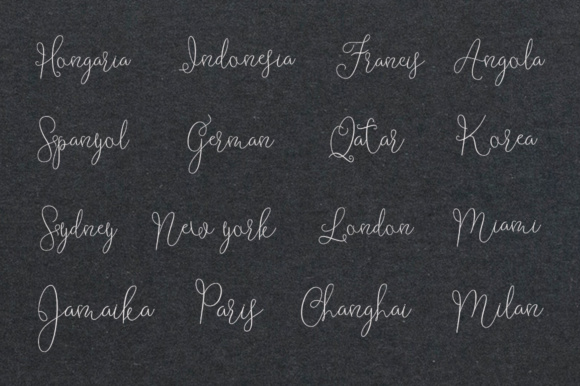 Hongaria Indonesia Francis Angola
Spanyol German Qatar Korea
Sydney New york London Miami
Jamaika Paris Changhai Milan